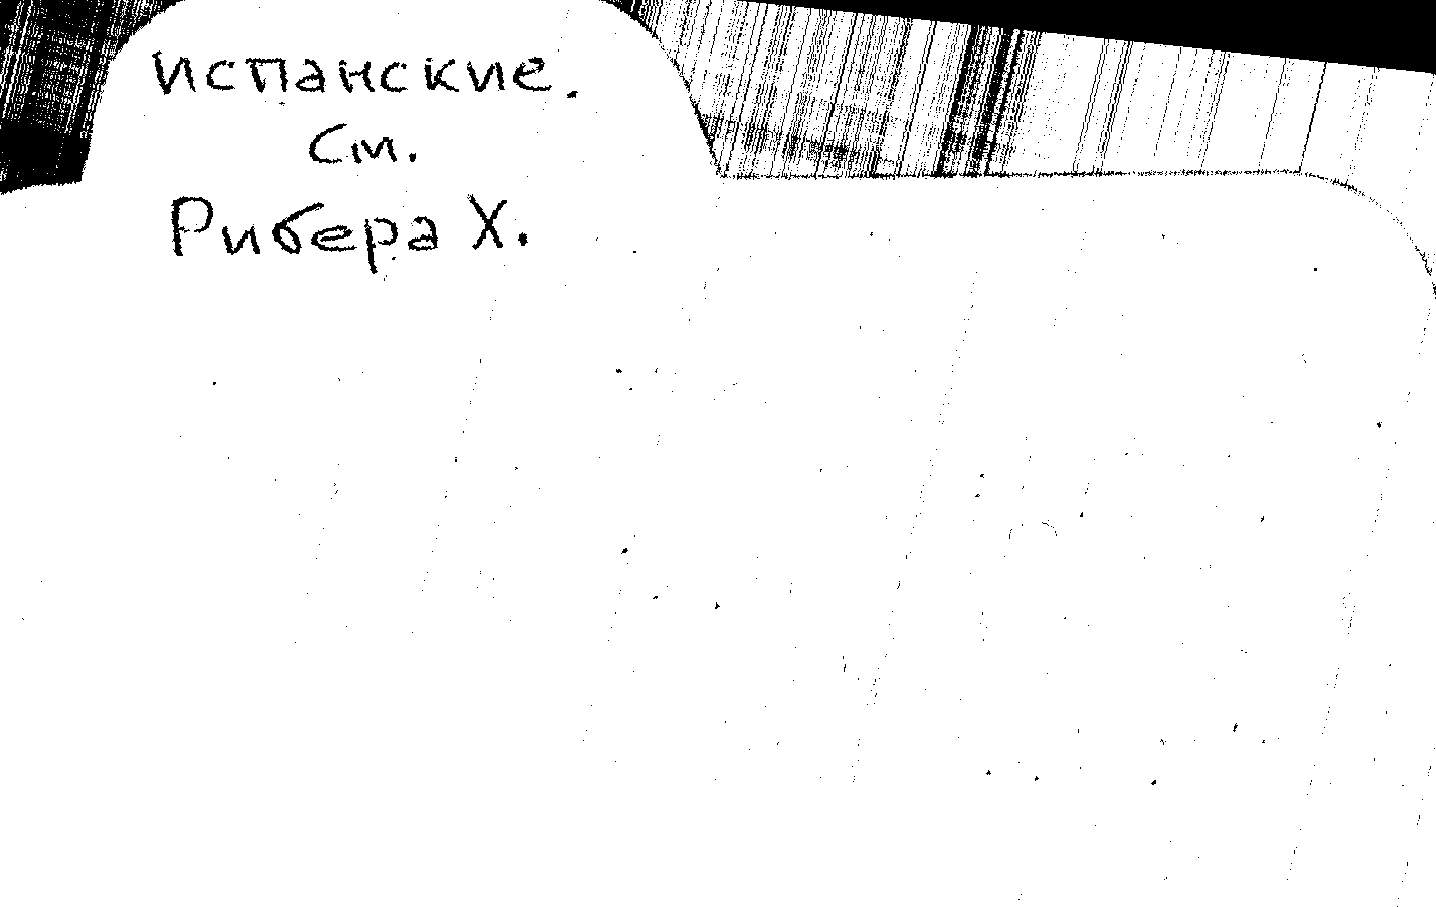 испанские.
См.
Рибера Х.